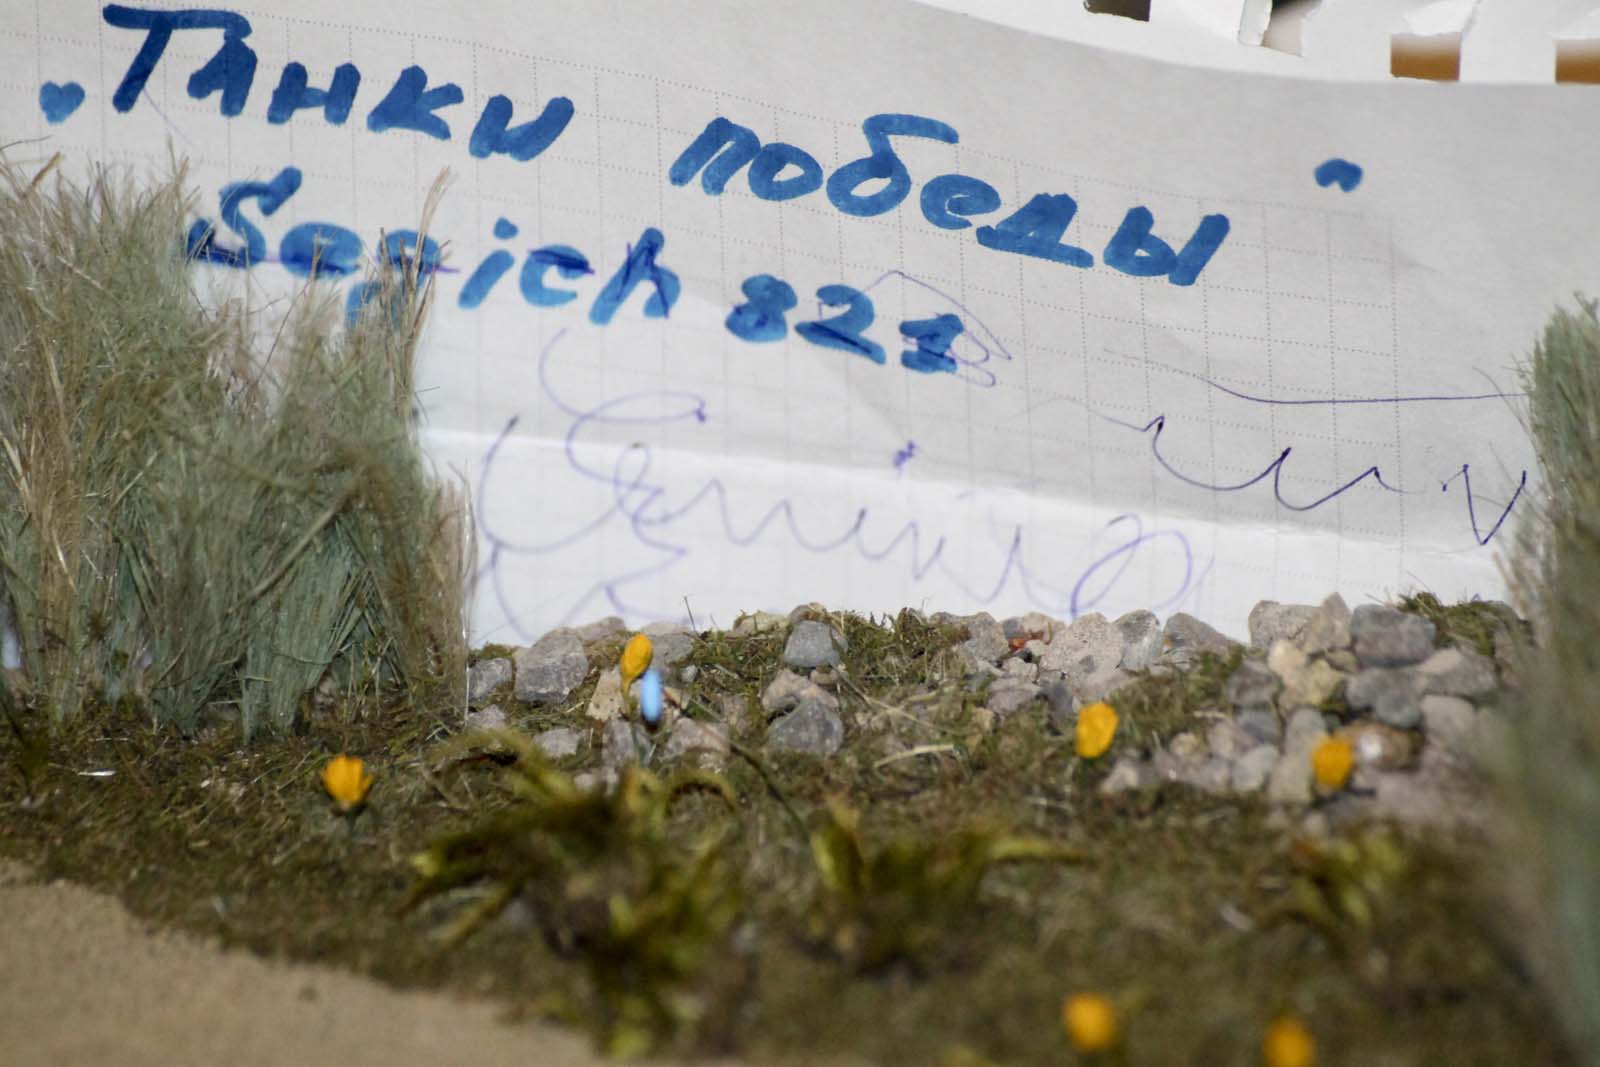 „Танки победы"
Sapich 821